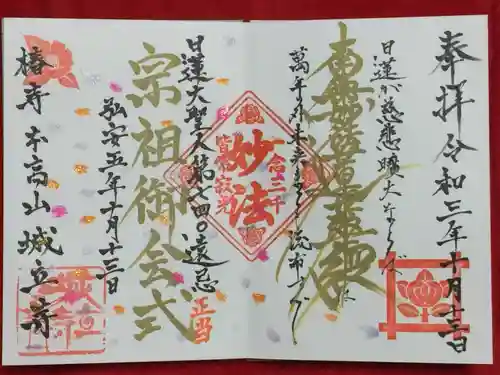 奉拝 令和三年十月十三日
南無妙法蓮華経
日蓮が慈悲曠大ならば
萬年の外未来までも流布すべし
妙法
一念三千
皆成救光
日蓮大聖人第七四〇遠忌
正当
宗祖御会式
弘安五年十月十三日
椿寺 本高山 城立寺